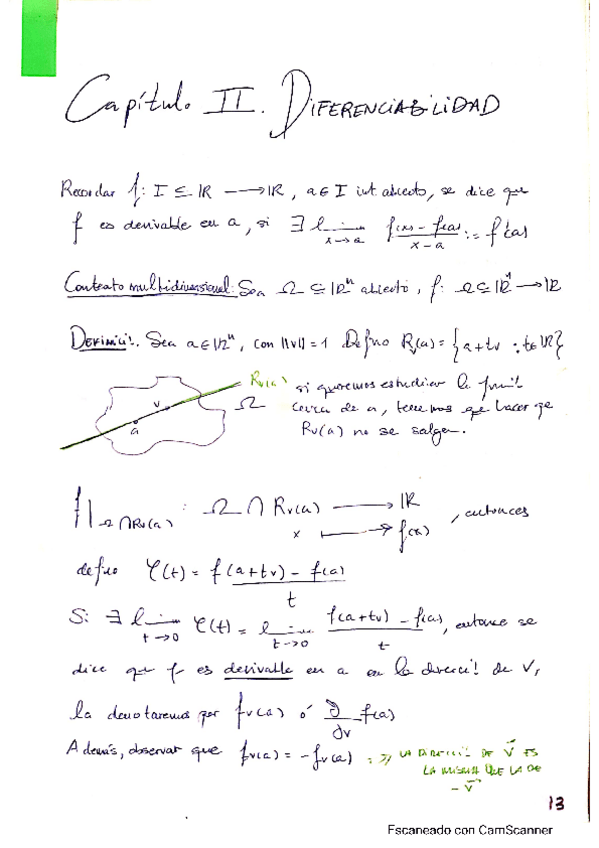 Capítulo II. DIFERENCIABILIDAD
Recordar f: I ⊆ IR → IR, a ∈ I int. abierto, se dice que
f es derivable en a, si ∃ lim x→a f(x) - f(a) / x - a := f'(a)
Contexto multidimensional: Sea Ω ⊆ IRⁿ abierto, f: Ω ⊆ IRⁿ → IR
DEFINICI: Sea a ∈ IRⁿ, con ||v|| = 1 Defino Rv(a) = {a + tv : t ∈ IR}
Rv(a)
Ω
v
a
si queremos estudiar la
cerca de a, tenemos que hacer qe
Rv(a) no se salga.
f|Ω∩Rv(a) : Ω ∩ Rv(a) → IR , entonces
x ↦ f(x)
defino φ(t) = f(a+tv) - f(a) / t
Si ∃ lim t→0 φ(t) = lim t→0 f(a+tv) - f(a) / t, entonce se
dice que f es derivable en a en la direcci de v,
la denotaremos por fv(a) ó ∂/∂v f(a)
Además, observar que fv(a) = -fv(a) :
LA DIRECCI DE v⃗ ES
LA MISMA QUE LA DE
-v⃗
13
Escaneado con CamScanner